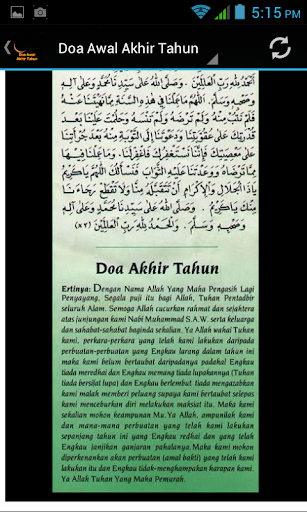 5:15 PM
Doa Awal Akhir Tahun
Doa Awal
Akhir Tahun
الحمد لله رب العالمين . وصلى الله على سيدنا محمد وعلى آله
وصحبه وسلم . اللهم ما عملنا في هذه السنة مما نهيتنا عنه
فلم نتب منه ولم ترضه ولم تنسه وحلمت علينا بعد
قدرتك على عقوبتنا ودعوتنا إلى التوبة منه بعد جرأتنا
على معصيتك فإنا نستغفرك فاغفر لنا . وما عملنا فيها
مما ترضاه ووعدتنا عليه الثواب فنسألك اللهم يا كريم
يا ذا الجلال والإكرام أن تتقبله منا ولا تقطع رجاءنا
منك يا كريم . وصلى الله على سيدنا محمد وعلى آله
وصحبه وسلم . والحمد لله رب العالمين (×٧)
Doa Akhir Tahun
Ertinya: Dengan Nama Allah Yang Maha Pengasih Lagi
Penyayang, Segala puji itu bagi Allah, Tuhan Pentadbir
seluruh Alam. Semoga Allah cucurkan rahmat dan sejahtera
atas junjungan kami Nabi Muhammad S.A.W. serta keluarga
dan sahabat-sahabat baginda sekalian. Ya Allah wahai Tuhan
kami, perkara-perkara yang telah kami lakukan daripada
perbuatan-perbuatan yang Engkau larang dalam tahun ini
maka kami belum bertaubat daripadanya padahal Engkau
tiada meredhai dan Engkau memang tiada lupakannya (Tuhan
tiada bersifat lupa) dan Engkau berlembut tiada mengazabkan
kami malah memberi peluang supaya kami bertaubat selepas
kami menceburkan diri melakukan maksiat itu. Maka kami
sekalian mohon keampunan Mu. Ya Allah, ampunilah kami
dan mana-mana perbuatan yang telah kami lakukan
sepanjang tahun ini yang Engkau redhai dan yang telah
Engkau janjikan ganjaran pahalanya. Maka kami mohon
diperkenankan akan perbuatan (amal bakti) yang telah kami
lakukan itu dan Engkau tidak-menghampakan harapan kami.
Ya Allah Tuhan Yang Maha Pemurah.